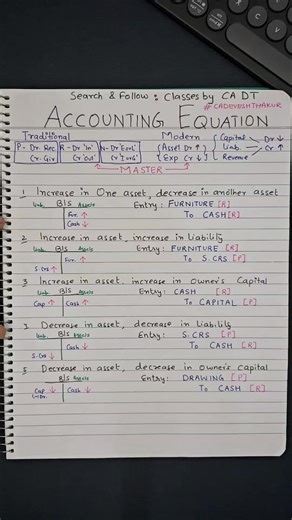 Search & Follow : Classes by CA DT
#CADEVESHTHAKUR
ACCOUNTING EQUATION
Traditional
Modern
P - Dr. Rec
Cr. Giv
R - Dr 'In'
Cr 'Out'
N - Dr 'Ex+L'
Cr 'I+G'
Asset Dr ↑
Exp Cr ↓
Capital
Liab.
Revenue
Dr ↓
Cr ↑
MASTER
1 Increase in One asset, decrease in another asset
Liab. B|S Assets Entry: FURNITURE [R]
Fur. ↑ To CASH [R]
Cash ↓
2. Increase in asset, increase in Liability
Liab. B|S Assets Entry: FURNITURE [R]
Fur. ↑ To S.CRS [P]
S.CRS ↑
3 Increase in asset, increase in owner's Capital
Liab. B|S Assets Entry: CASH [R]
Cap ↑ Cash ↑ To CAPITAL [P]
Decrease in asset, decrease in Liability
Liab. B|S Assets Entry: S.CRS [P]
Cash ↓ To CASH [R]
S.CRS ↓
5. Decrease in asset, decrease in owner's Capital
B|S Assets Entry: DRAWING [P]
Cap ↓ Cash ↓ To CASH [R]